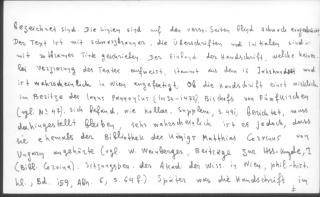 bezeichnet sind. Die Linien sind auf den verso-Seiten blind schwach eingedrückt.
Der Text ist mit schwarzbrauner, die Überschriften und Initialen sind mit
roter Tinte geschrieben. Der Einband der Handschrift, welche keinerlei
Verzierung des Textes aufweist, stammt aus dem 15. Jahrhundert und
ist wahrscheinlich in Wien angefertigt. Ob die Handschrift einst wirklich
im Besitze des Janus Pannonius (1434-1472), Bischofs von Fünfkirchen
(vgl. N° 47), sich befand, wie Kollar, Supplem., s. 491, berichtet, muss
dahingestellt bleiben, sehr wahrscheinlich ist es jedoch, dass
sie ehemals der Bibliothek des Königs Matthias Corvinus von
Ungarn angehörte (vgl. W. Weinberger, Beiträge zur Hss.-Kunde, I
(Bibl. Corvina): Sitzungsber. der Akad. der Wiss. in Wien, phil.-hist.
Kl., Bd. 159, Abh. 6, s. 64 f.). Später war die Handschrift im